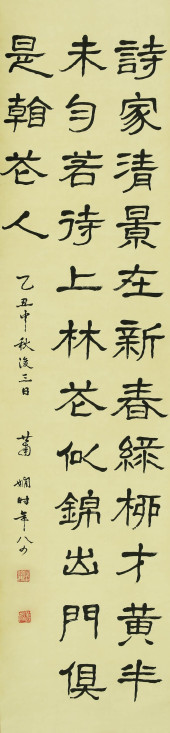 詩家清景在新春綠柳才黃半
未勻若待上林花似錦出門俱
是看花人
乙丑中秋後三日 蕭嫻時年八四